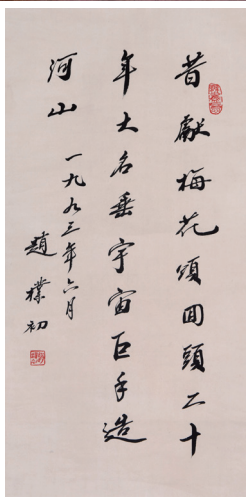 昔獻梅花頌回頭二十
年大名垂宇宙巨手造
河山
一九九三年六月
趙樸初